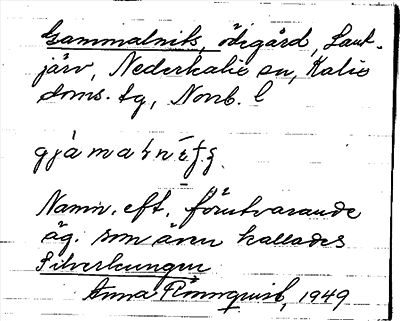 Gammalnils, ödegård, Laut-
järv, Nederkalix sn, Kalix
doms. tg, Norrb. l
Namn. eft. förutvarande
äg. som även kallades
Silverkungen
Anna Rönnquist, 1949